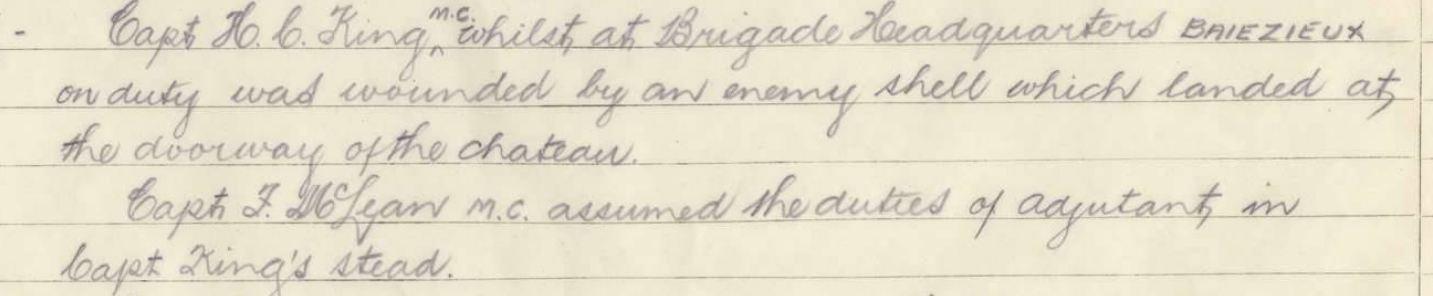 - Capt H. C. King ^M.C. whilst at Brigade Headquarters BAIEZIEUX
on duty was wounded by an enemy shell which landed at
the doorway of the chateau.
Capt F. McLean M.C. assumed the duties of adjutant in
Capt King's stead.